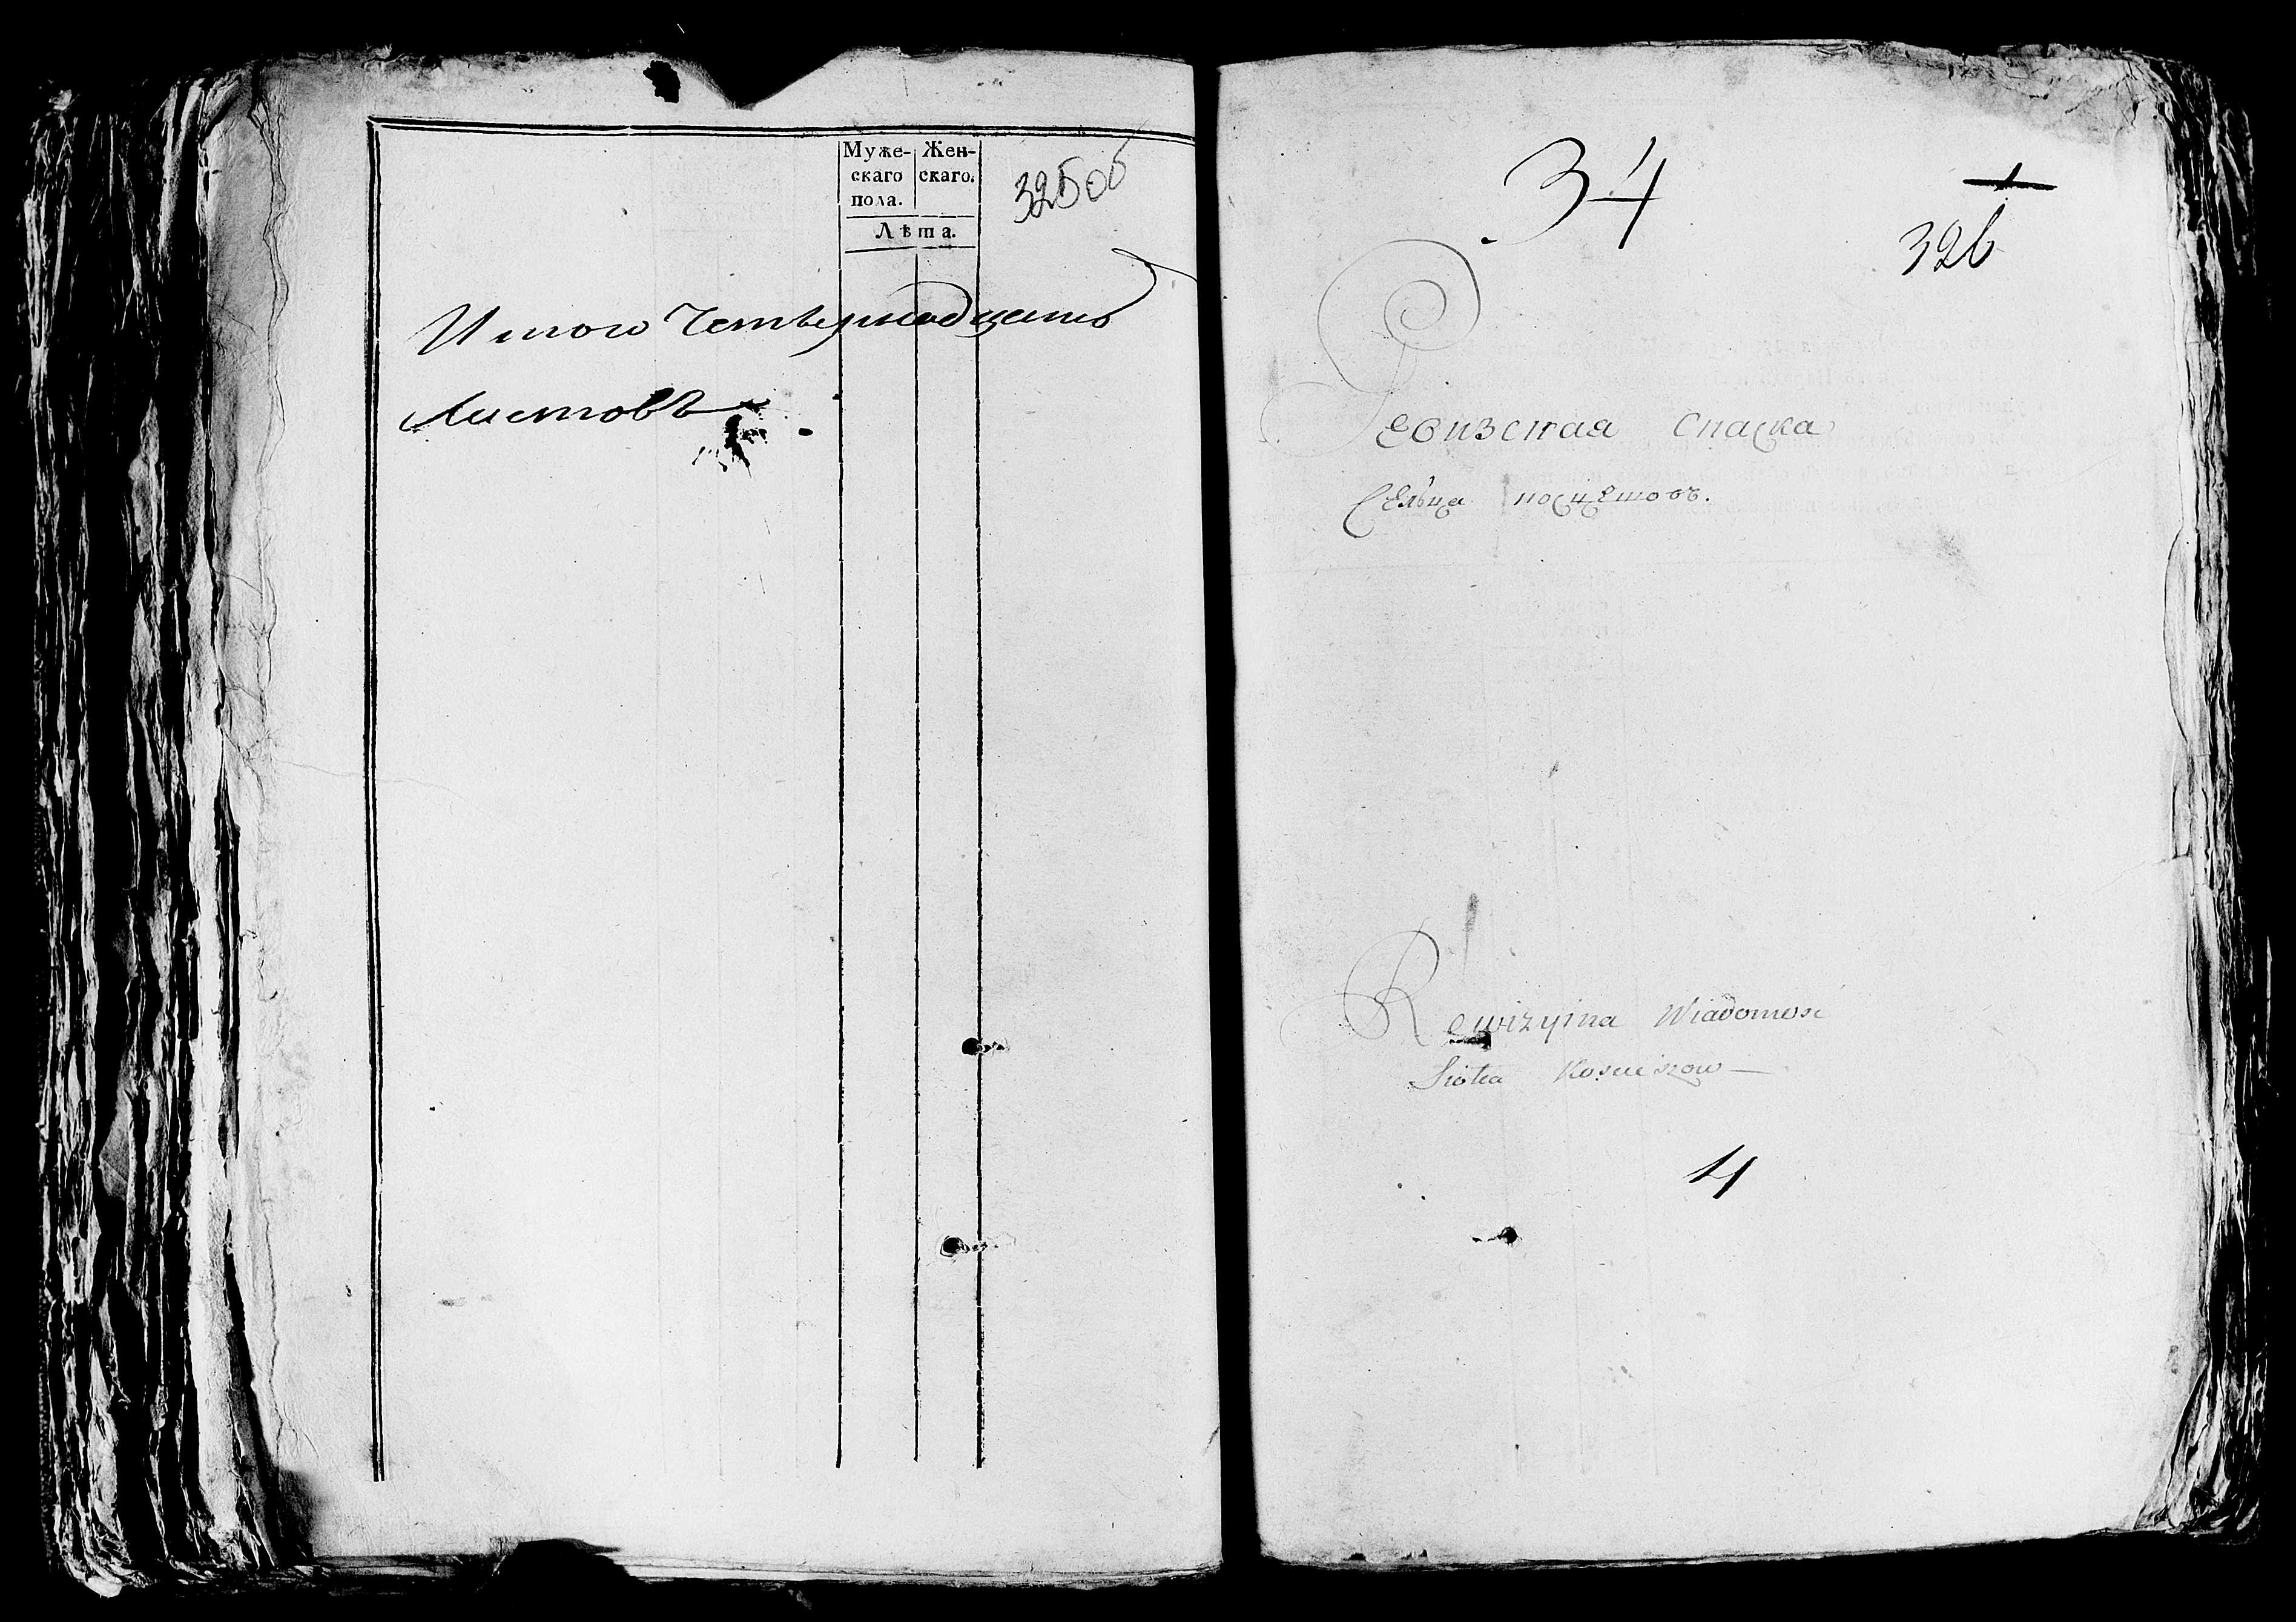 Муже-
скаго
пола.
Жен-
скаго.
Лѣта.
325об
Итого Четырнадцать
Листовъ
34
326
Ревизская Сказка
Сельца
4
Rewizyina Wiadomosc
Siola Kosciszow